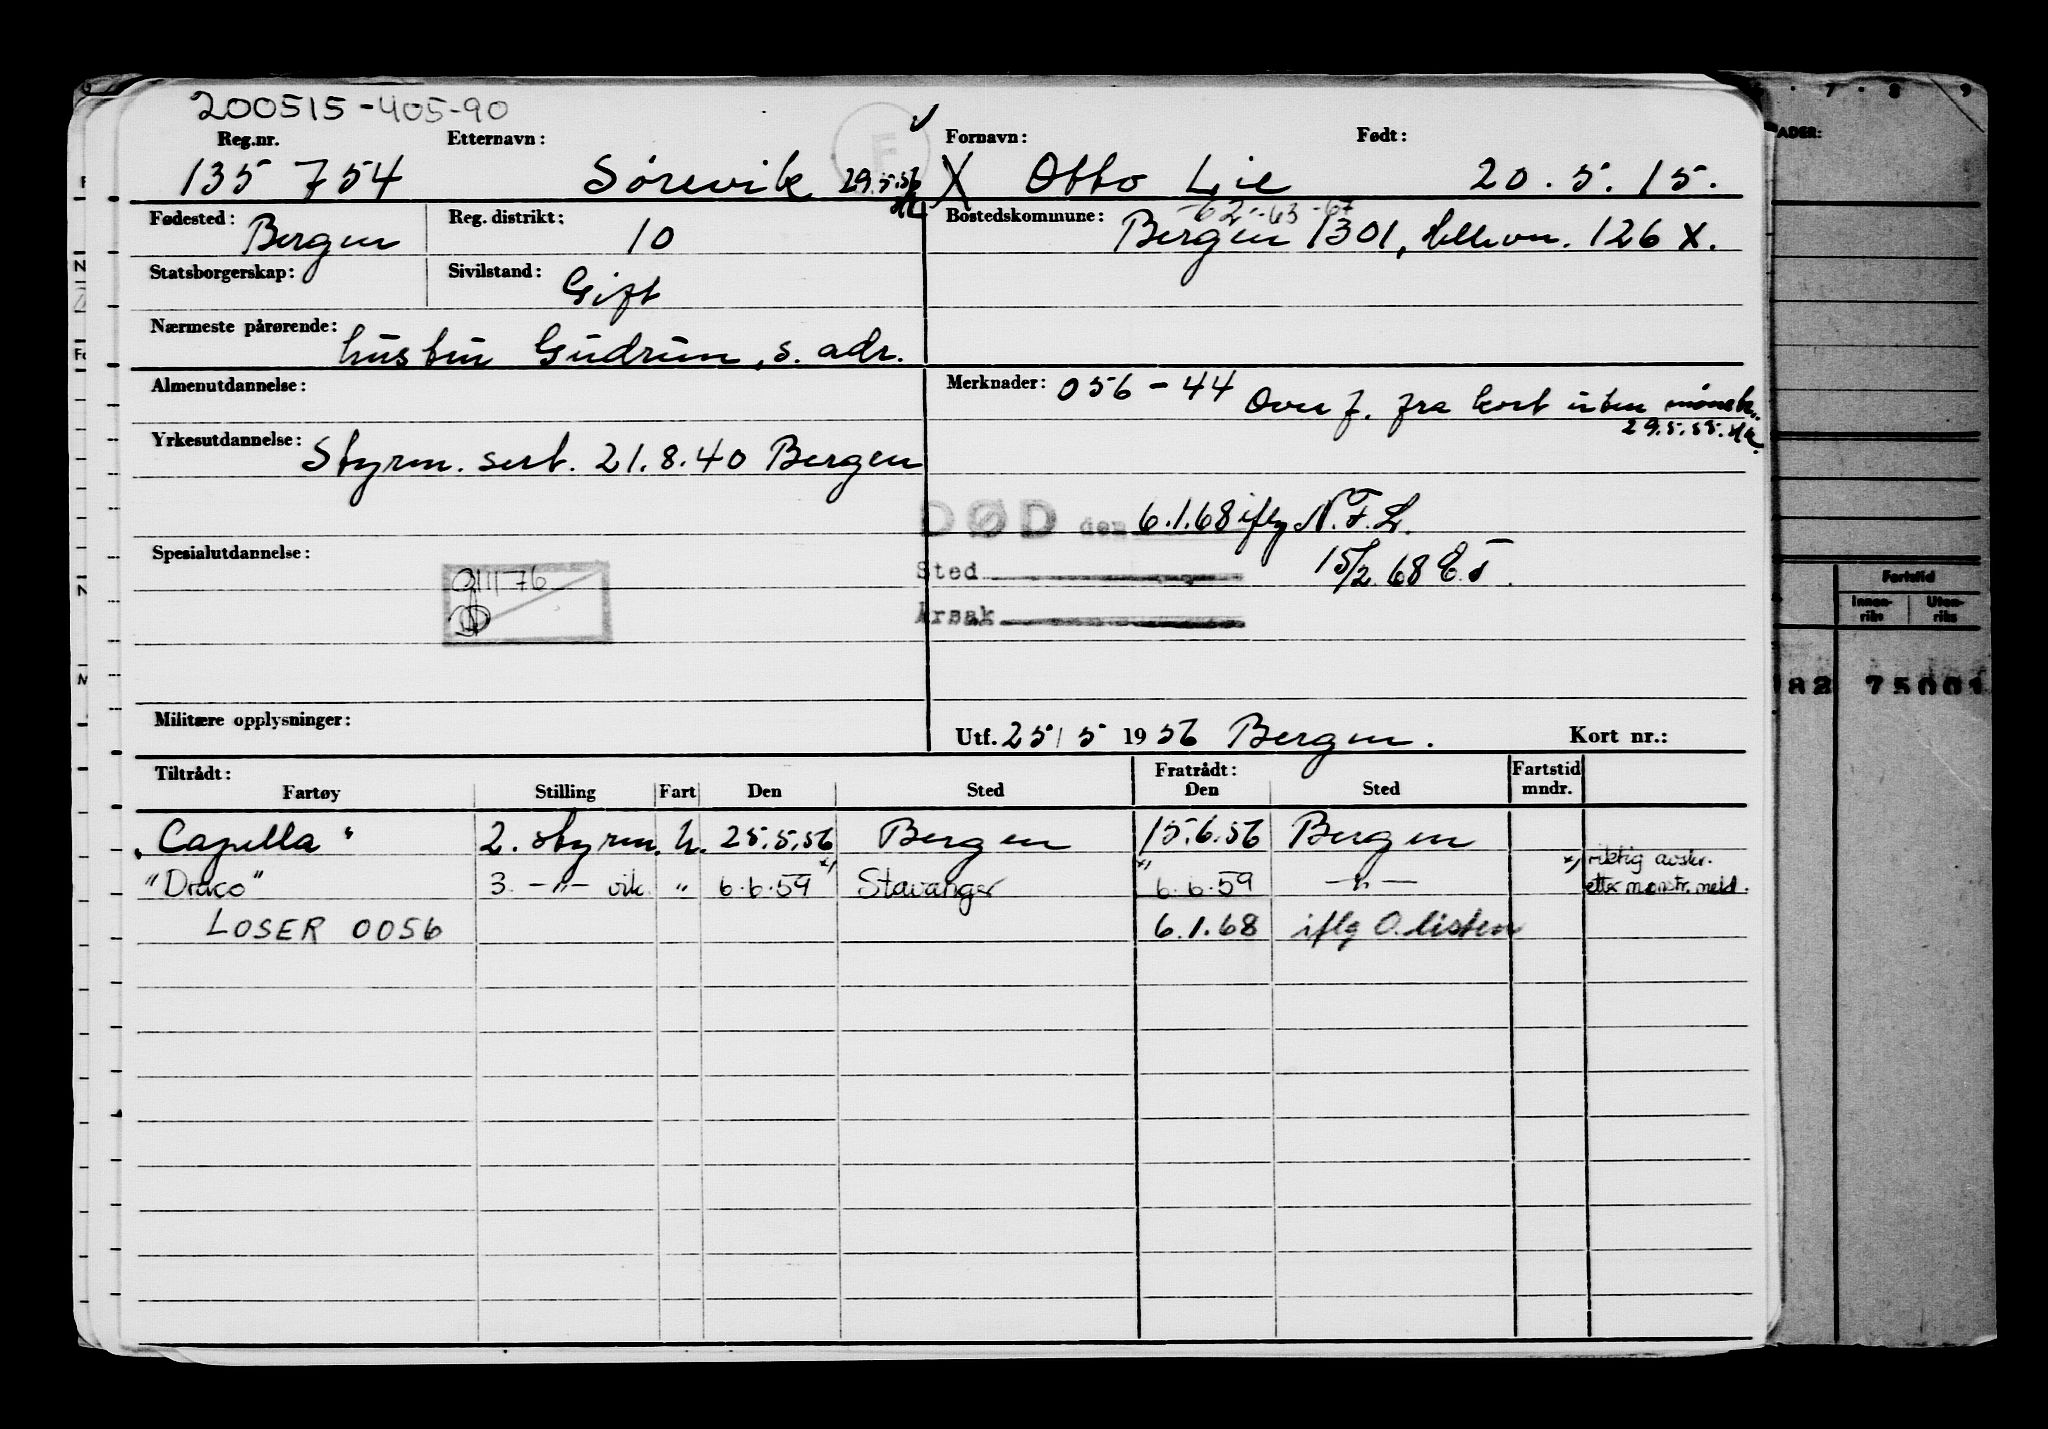 200515-405-90
Reg.nr. Etternavn: Fornavn: Født:
135 754 Sörevik 29.5.56 X Otto Lie 20.5.15.
Fødested: Bergen Reg. distrikt: 10 Bostedskommune: -62-63-67
Bergen 1301, 126 X.
Statsborgerskap: Sivilstand: Gift
Nærmeste pårørende: hustru Gudrun, s. adr.
Almenutdannelse: Merknader: 056-44 Overf. fra kort uten mönstr.
29.5.55.
Yrkesutdannelse: Styrm. sert. 21.8.40 Bergen
DØD den 6.1.68 iflg N.F.L.
Spesialutdannelse: Sted 15/2.68 E.T.
Årsak
Militære opplysninger: Utf. 25/5 1956 Bergen. Kort nr.:
Tiltrådt: Fratrådt: Fartstid
Fartøy Stilling Fart Den Sted Den Sted mndr.
"Capella" 2. styrm. U. 25.5.56 Bergen 15.6.56 Bergen
"Draco" 3. -"- vik. " 6.6.59 x) Stavanger x) 6.6.59 -"- x) riktig avskr.
etter mønstr. meld.
LOSER 0056 6.1.68 iflg O.listen
7 · 8 9
ADER:
Fartstid
Innen-
riks Uten-
riks
82 75001